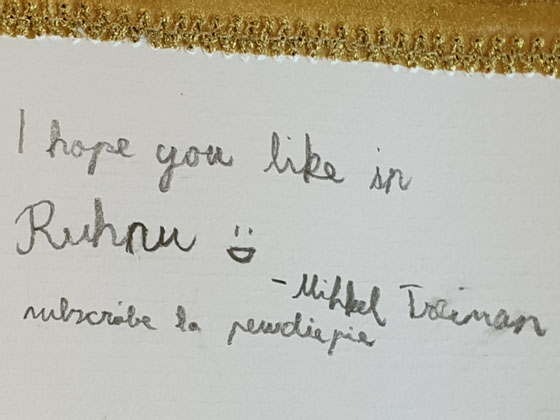 I hope you like in
Ruhnu
- Mihkel Traiman
subscribe to pewdiepie